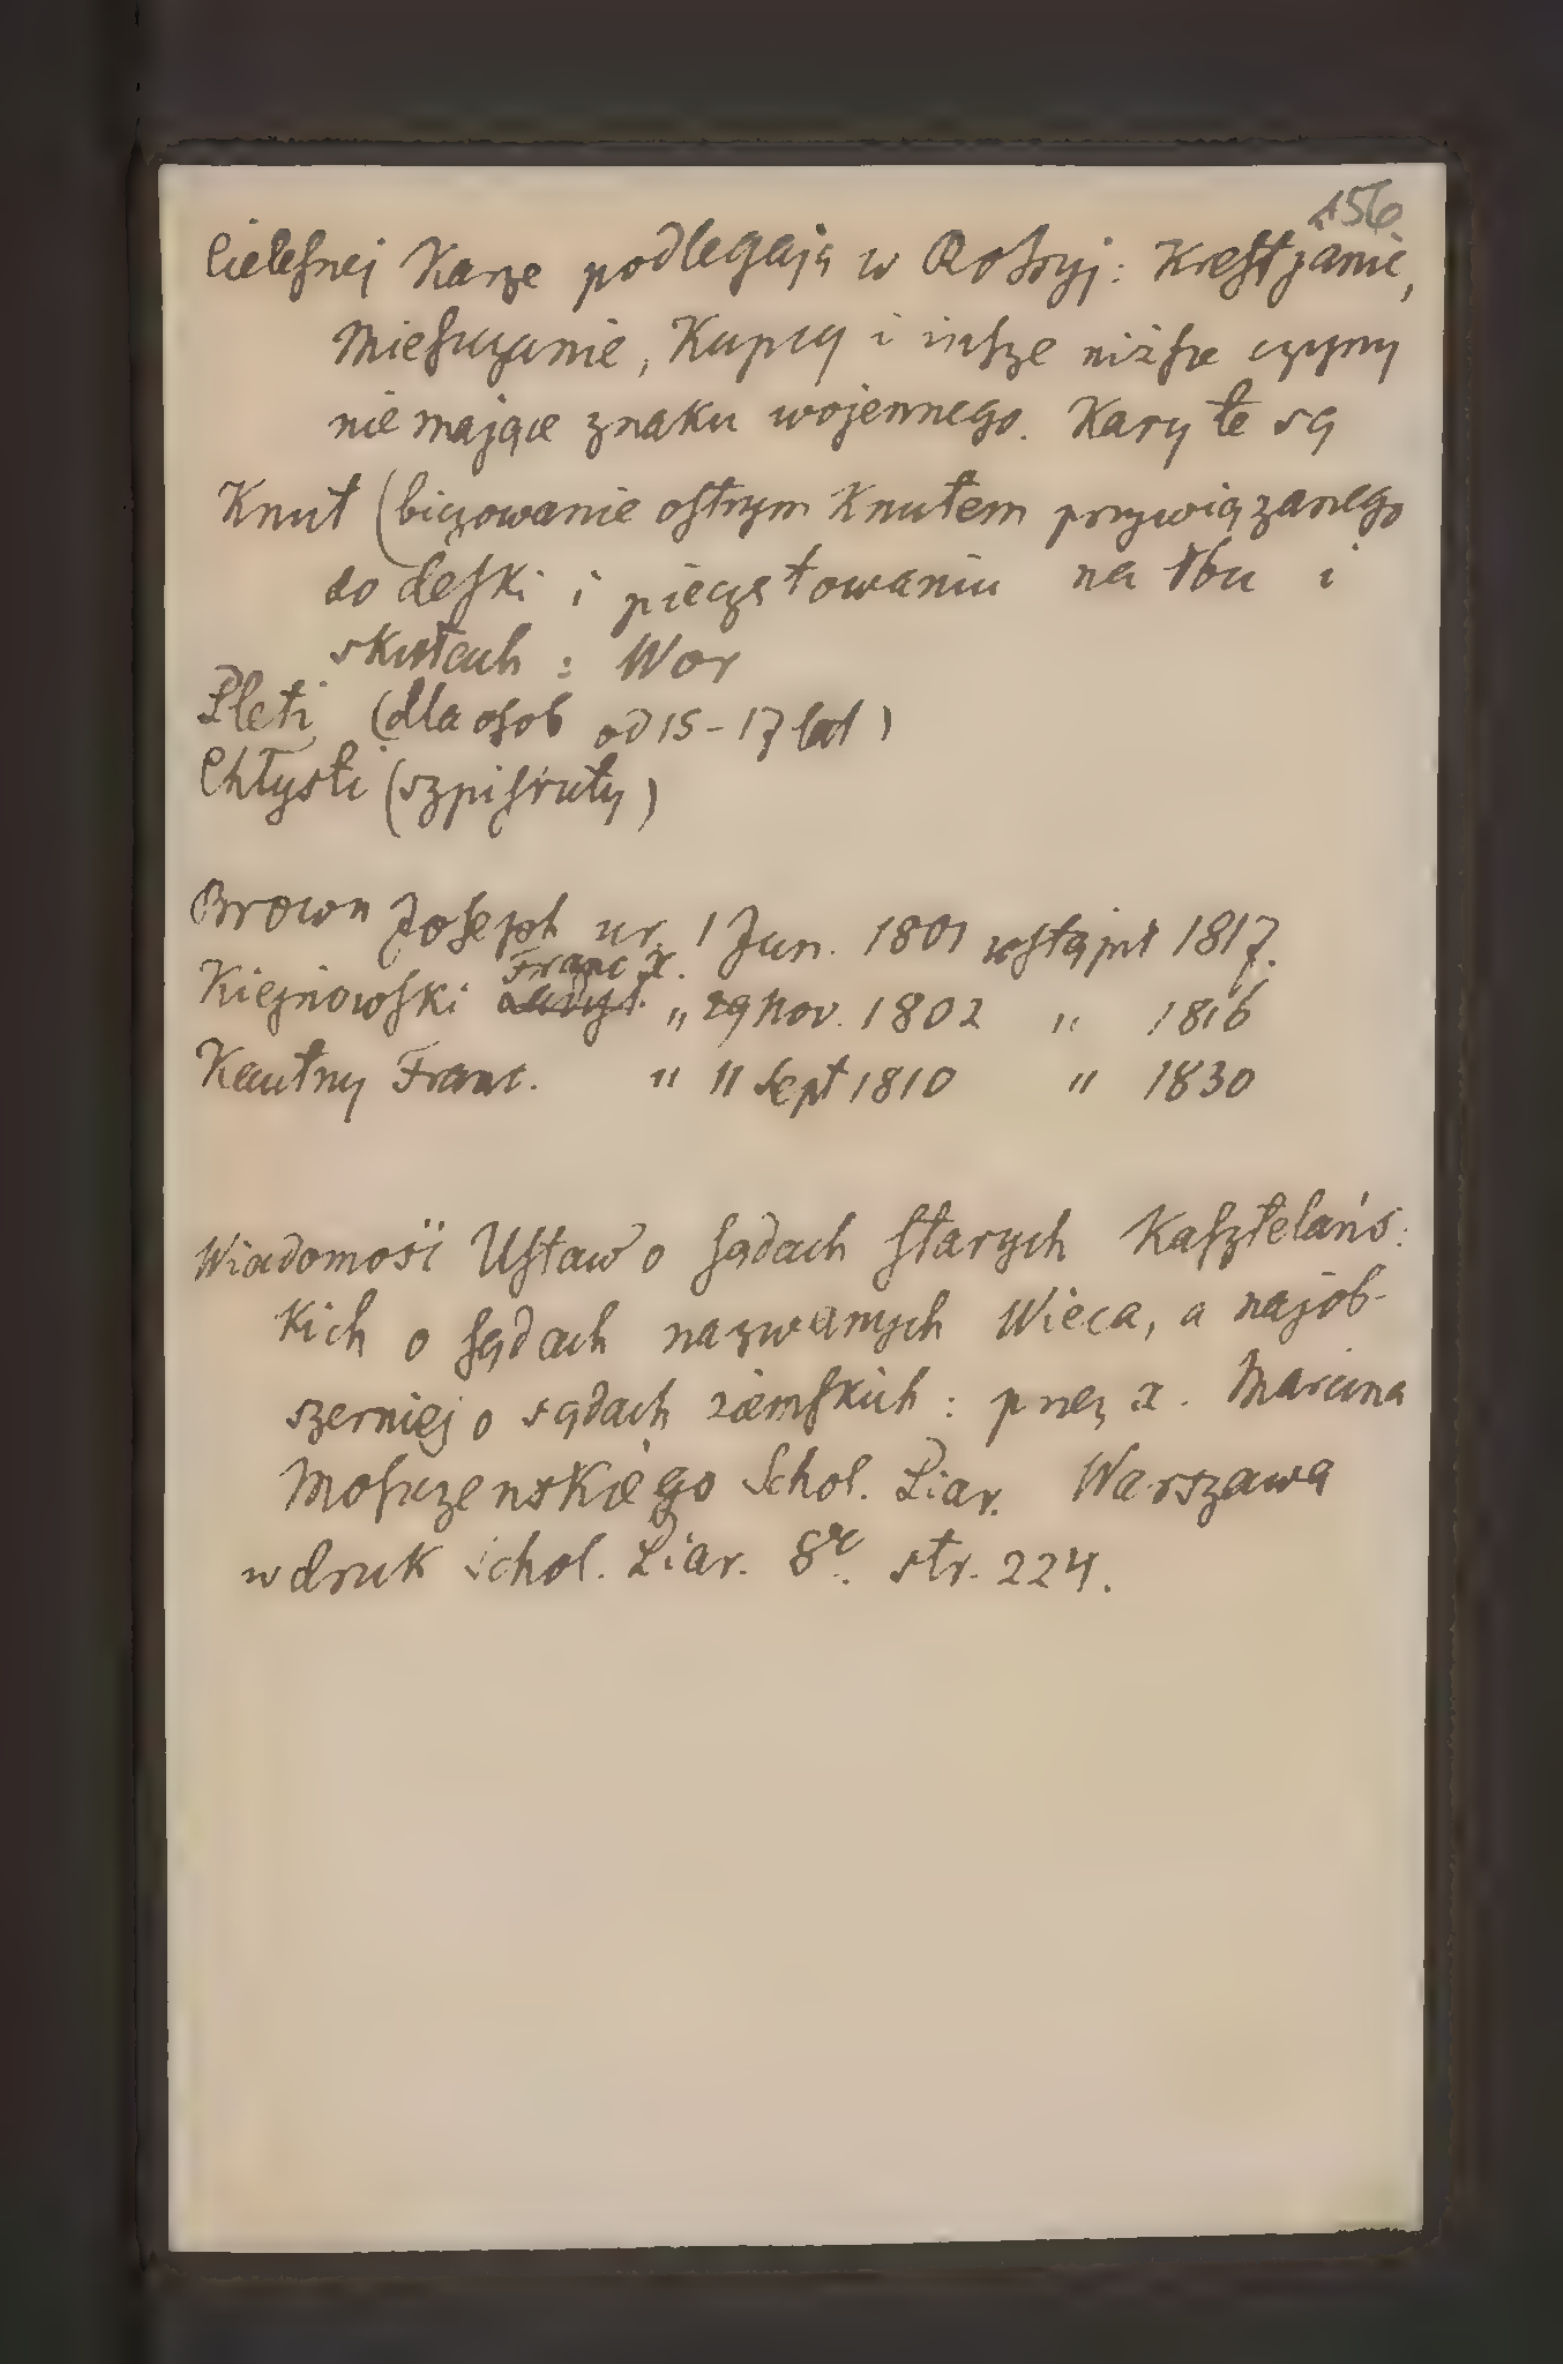 156
Cielesnej Karze podlegają w Rossyj: Krestjanie,
Mieszczanie, Kupcy i insze niższe czyny
nie mające znaku wojennego. Kary te są
Knut (biczowanie ostrym Knutem przywiązanego
do deski i pieczętowaniu na łbu i
: Wor
Pleti (dla osob od 15-17 lat)
Chłysti (szpisruty)
Brown Joseph ur. 1 Jun. 1801 wstąpił 1817.
Franc X.
Kiejnowski „ 29 Nov. 1802 „ 1816
Kautny Franc. „ 11 Sept 1810 „ 1830
Wiadomośi Ustaw o sądach starych Kasztelańs:
kich o sądach nazwanych Wieca, a najob-
szerniej o sądach ziemskich: przez x. Marcina
Moszczenskiego Schol. Piar. Warszawa
w druk Schol. Piar. 8º. str. 224.